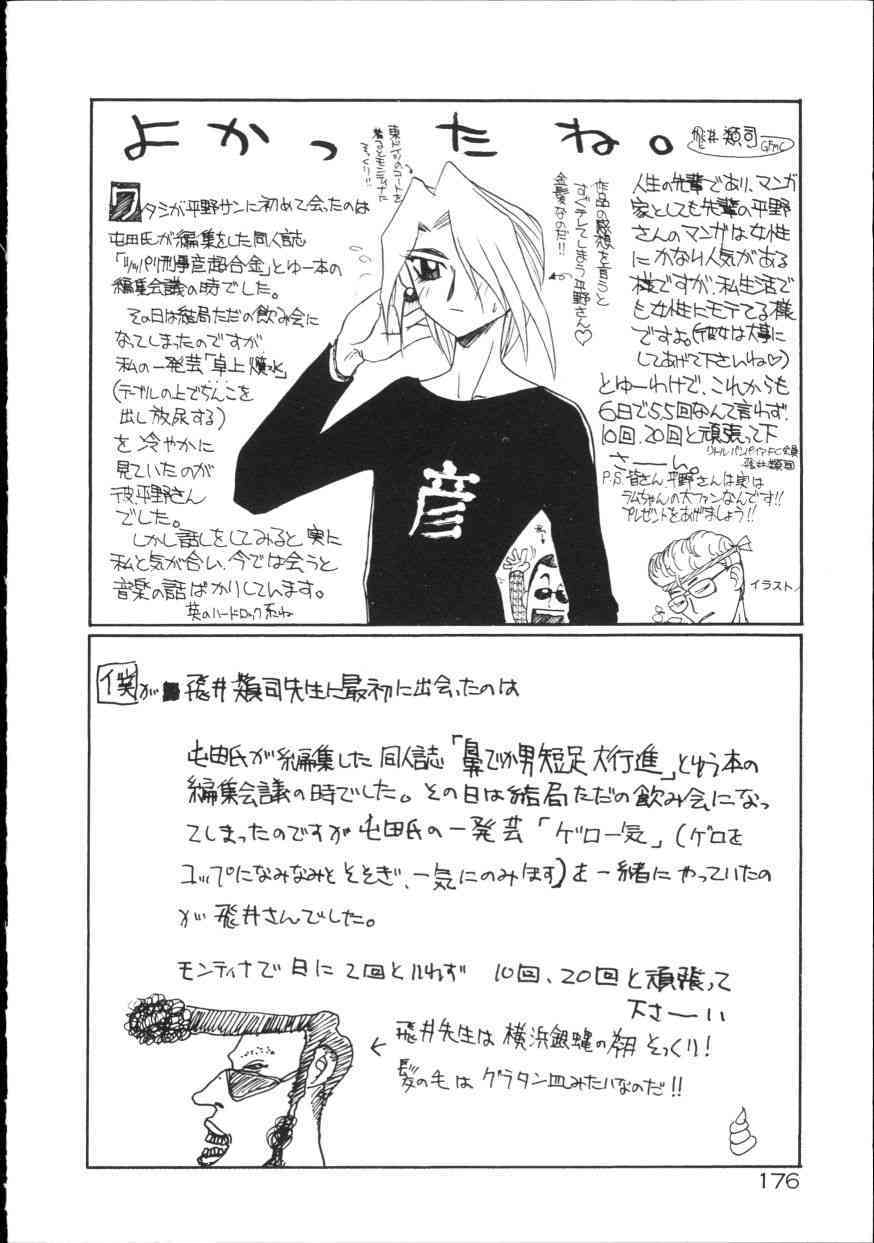 よかったね。
飛井類司
GFMC
東ドイツのコートを
着るとモンティナだ
そっくり!!
ワタシが平野サンに初めて会ったのは
屯田氏が編集をした同人誌
「ツッパリ刑事彦超合金」とゆー本の
編集会議の時でした。
その日は結局ただの飲み会に
なってしまったのですが
私の一発芸「卓上噴水」
(テーブルの上でちんこを
出し放尿する)
を冷やかに
見ていたのが
彼、平野さん
でした。
しかし話しをしてみると実に
私と気が合い、今では会うと
音楽の話ばかりしています。
英のハードロック系ね
作品の感想を言うと
すぐテレてしまう平野さん♡
金髪なのだ!!
彦
人生の先輩であり、マンガ
家としても先輩の平野
さんのマンガは女性
にかなり人気がある
様ですが、私生活で
も女性にモテてる様
ですよ(彼女は大事に
してあげて下さいね♡)
とゆーわけで、これからも
6日で55回なんて言わず、
10回、20回と頑張って下
さーい。
リトルバンパイアFC会員
飛井類司
P.S.皆さん平野さんは実は
ラムちゃんの大ファンなんです!!
プレゼントをあげましょう!!
イラスト/
僕が飛井類司先生に最初に出会ったのは
屯田氏が編集した同人誌「鼻でか男短足大行進」とゆう本の
編集会議の時でした。その日は結局ただの飲み会になっ
てしまったのですが屯田氏の一発芸「ゲロ一気」(ゲロを
コップになみなみとそそぎ、一気にのみほす)を一緒にやっていたの
が飛井さんでした。
モンティナで日に2回といわず 10回、20回と頑張って
下さーい
←飛井先生は横浜銀蝿の翔そっくり!
髪の毛はグラタン皿みたいなのだ!!
176